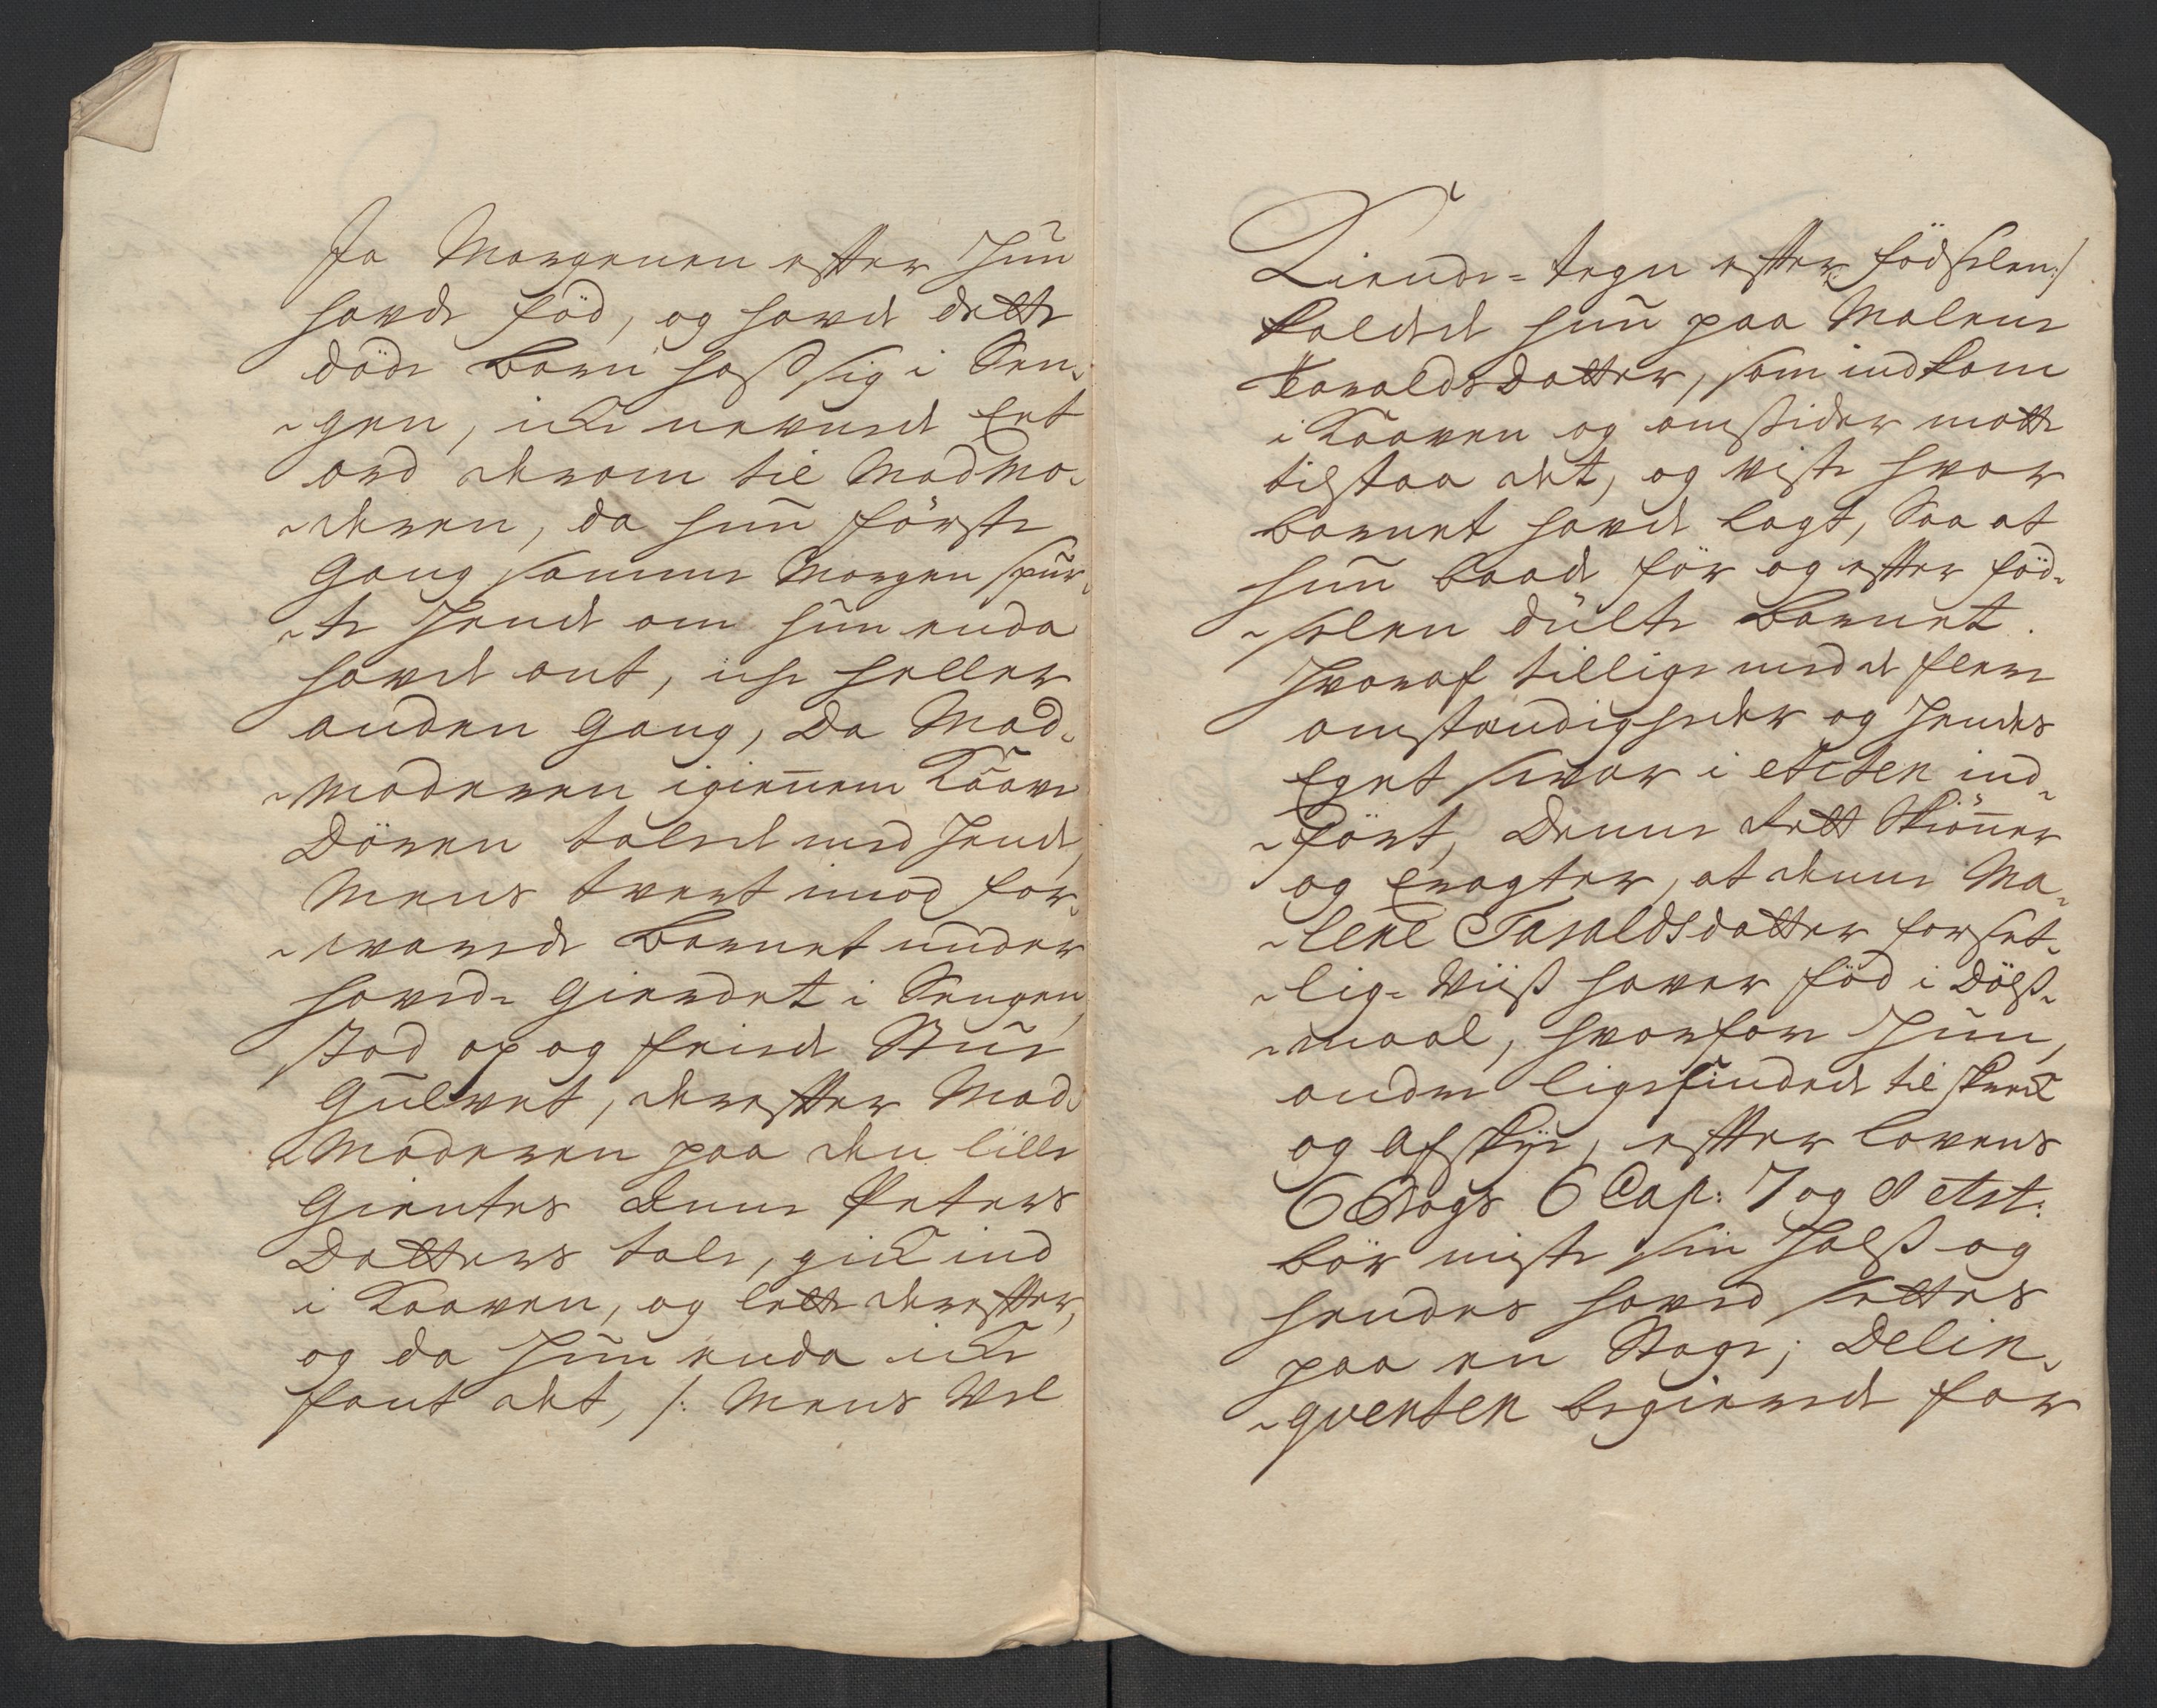 Ja Morgenen efter Hun
hafde fød, og hafde dette
døde Barn hoß sig i Sen-
-gen, icke nevnede Eet
ord derom til Madmo-
-deren, da hun første
Gang samme Morgen spur-
-te Hende om hun enda
hafde ont, icke heller
anden Gang, da Mad-
-moderen igiennem Kaave
Døren talede med Hende,
Mens tvert imod for-
-varede Barnet under
hoved-Gierdet i Sengen,
stod op og feiede Stue
Gulvet, derefter Mad-
-Moderen paa den lille
Gientes Anne Peters
Datters tale, gick ind
i Kaaven, og lette derefter,
og da Hun enda icke
fant det, /: Mens Vel
Kiende-tegn efter fødselen :/
kaldede hun paa Malene
Taraldsdatter, som indkom
i Kaaven og omsider motte
tilstaa det, og viste hvor
barnet hafde lagt, Saa at
hun baade før og efter fød-
-selen dulte Barnet.
Hvoraf tillige med de flere
omstendigheder og Hendes
Eget svar i Acten ind-
-ført, Denne Rett Skiønner
og Eragter, at denne Ma-
-lene Taraldsdatter forset-
-lig-Viiß haver fød i Dølß-
-maal, hvorfore Hun,
andre ligesindede til skreck
og Afskye, efter lovens
6 Bogs 6 Cap: 7 og 8 Art:
bør miste sin Halß og
hendes hoved settes
paa en Stage; Delin-
-qventen begierede for